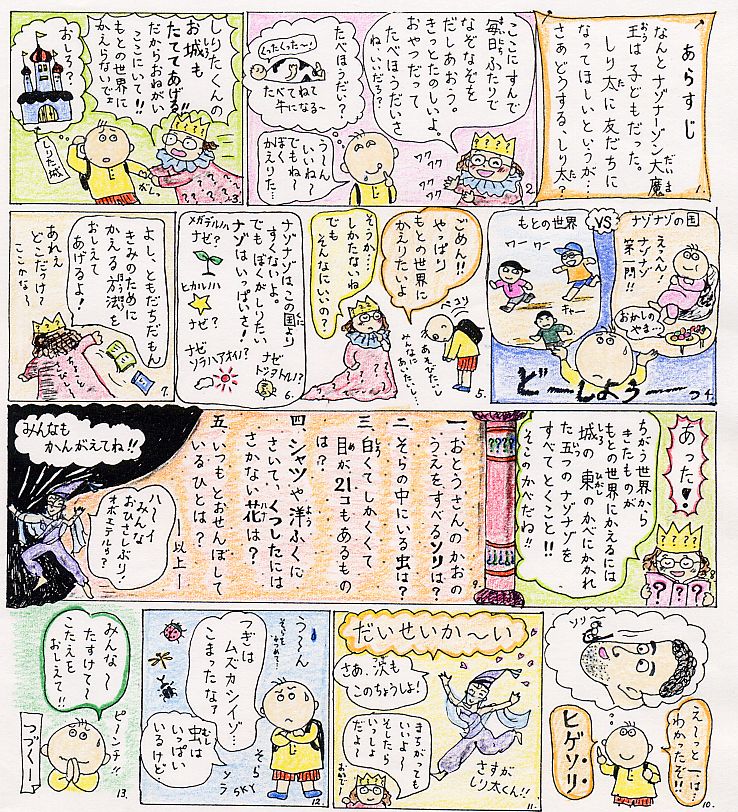 あらすじ
なんとナゾナーゾン大魔
王は子どもだった。
しり太に友だちに
なってほしいというが…
さあどうする、しり太?
1.
ここにすんで
毎日ふたりで
なぞなぞを
だしあおう。
きっとたのしいよ。
おやつだって
たべほうだいさ
ねいいだろ?
たべほうだい?
くったくった〜!
たべてねて
牛になる〜
う〜ん
いいね〜
でもね〜
ぼく
かえりた…
ワクワク
ワクワク
2.
しりたくんの
お城も
たててあげる!!
だからおねがい
ここにいて!!
もとの世界に
かえらないでェ
おしろ?
しりた城
がしっ
3.
ナゾナゾの国
VS
もとの世界
えっへん!
ナゾナゾ
第一問!!
おかしの
やま…
ワーワー
キャー
どーしよう
4.
ごめん!!
やっぱり
もとの世界に
かえりたいよ
ペコリ
あそびたいし
みんなに
あいたいし
そうか…
しかたないね
でも
そんなにいいの?
5.
ナゾナゾはこの国より
すくないよ。
でもぼくがしりたい
ナゾはいっぱいさ!
メガデルハ
ナゼ?
ヒカルハ
ナゼ?
ナゼ
ソラハアオイ?
ナゼ
6.
よし、ともだちだもん
きみのために
かえる方法を
おしえて
あげるよ!
あれェ
どこだっけ?
ここかな〜
7.
あった!
ちがう世界から
きたものが
もとの世界にかえるには
城の東のかべにかかれ
た五つのナゾナゾを
すべてとくこと!!
そしてそのかべだね!!
8
一おとうさんのかおの
うえをすべるソリは?
二、そらの中にいる虫は?
三白くてしかくくて
目が21コもあるもの
は?
四シャツや洋ふくに
さいて、くつしたには
さかない花は?
五、いつもとおせんぼして
いるひとは?
―以上―
9.
みんなも
かんがえてね!!
ハーイ
みんな
おひさしぶり!
オボエテルゥ?
ソリ〜
え〜っと一は…
わかったぞ!!
ヒゲソリ
10.
だいせいか〜い
さあ、次も
このちょうしよ!
さすが
しり太くん!!
まちがっても
いいよ〜
そしたら
いっしょ
だよ〜
おいで〜
11.
う〜ん
そらをみつめて…
つぎは
ムズカシイゾ…
こまったなァ
虫は
いっぱい
いるけど
そら
ソラ
SKY
12.
みんな〜
たすけて〜
こたえを
おしえて!!
ピーンチ!!
つづくー
13.